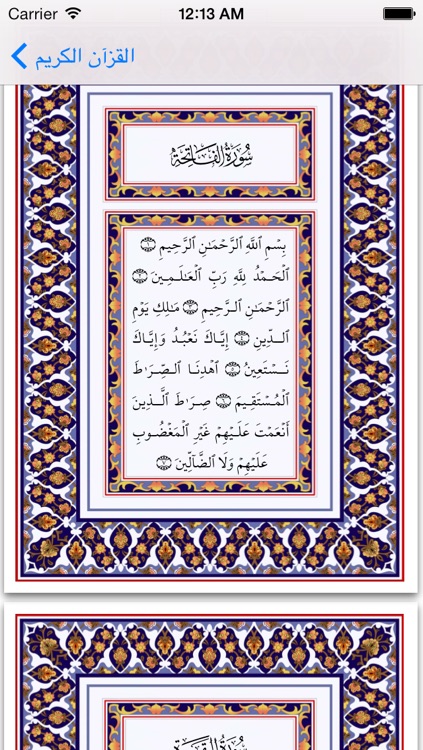 Carrier 12:13 AM
القزآن الكريم
سُورَةُ الفَاتِحَةِ
بِسْمِ ٱللَّهِ ٱلرَّحْمَٰنِ ٱلرَّحِيمِ ١
ٱلْحَمْدُ لِلَّهِ رَبِّ ٱلْعَٰلَمِينَ ٢
ٱلرَّحْمَٰنِ ٱلرَّحِيمِ ٣ مَٰلِكِ يَوْمِ
ٱلدِّينِ ٤ إِيَّاكَ نَعْبُدُ وَإِيَّاكَ
نَسْتَعِينُ ٥ ٱهْدِنَا ٱلصِّرَٰطَ
ٱلْمُسْتَقِيمَ ٦ صِرَٰطَ ٱلَّذِينَ
أَنْعَمْتَ عَلَيْهِمْ غَيْرِ ٱلْمَغْضُوبِ
عَلَيْهِمْ وَلَا ٱلضَّآلِّينَ ٧
سُورَةُ البَقَرَةِ